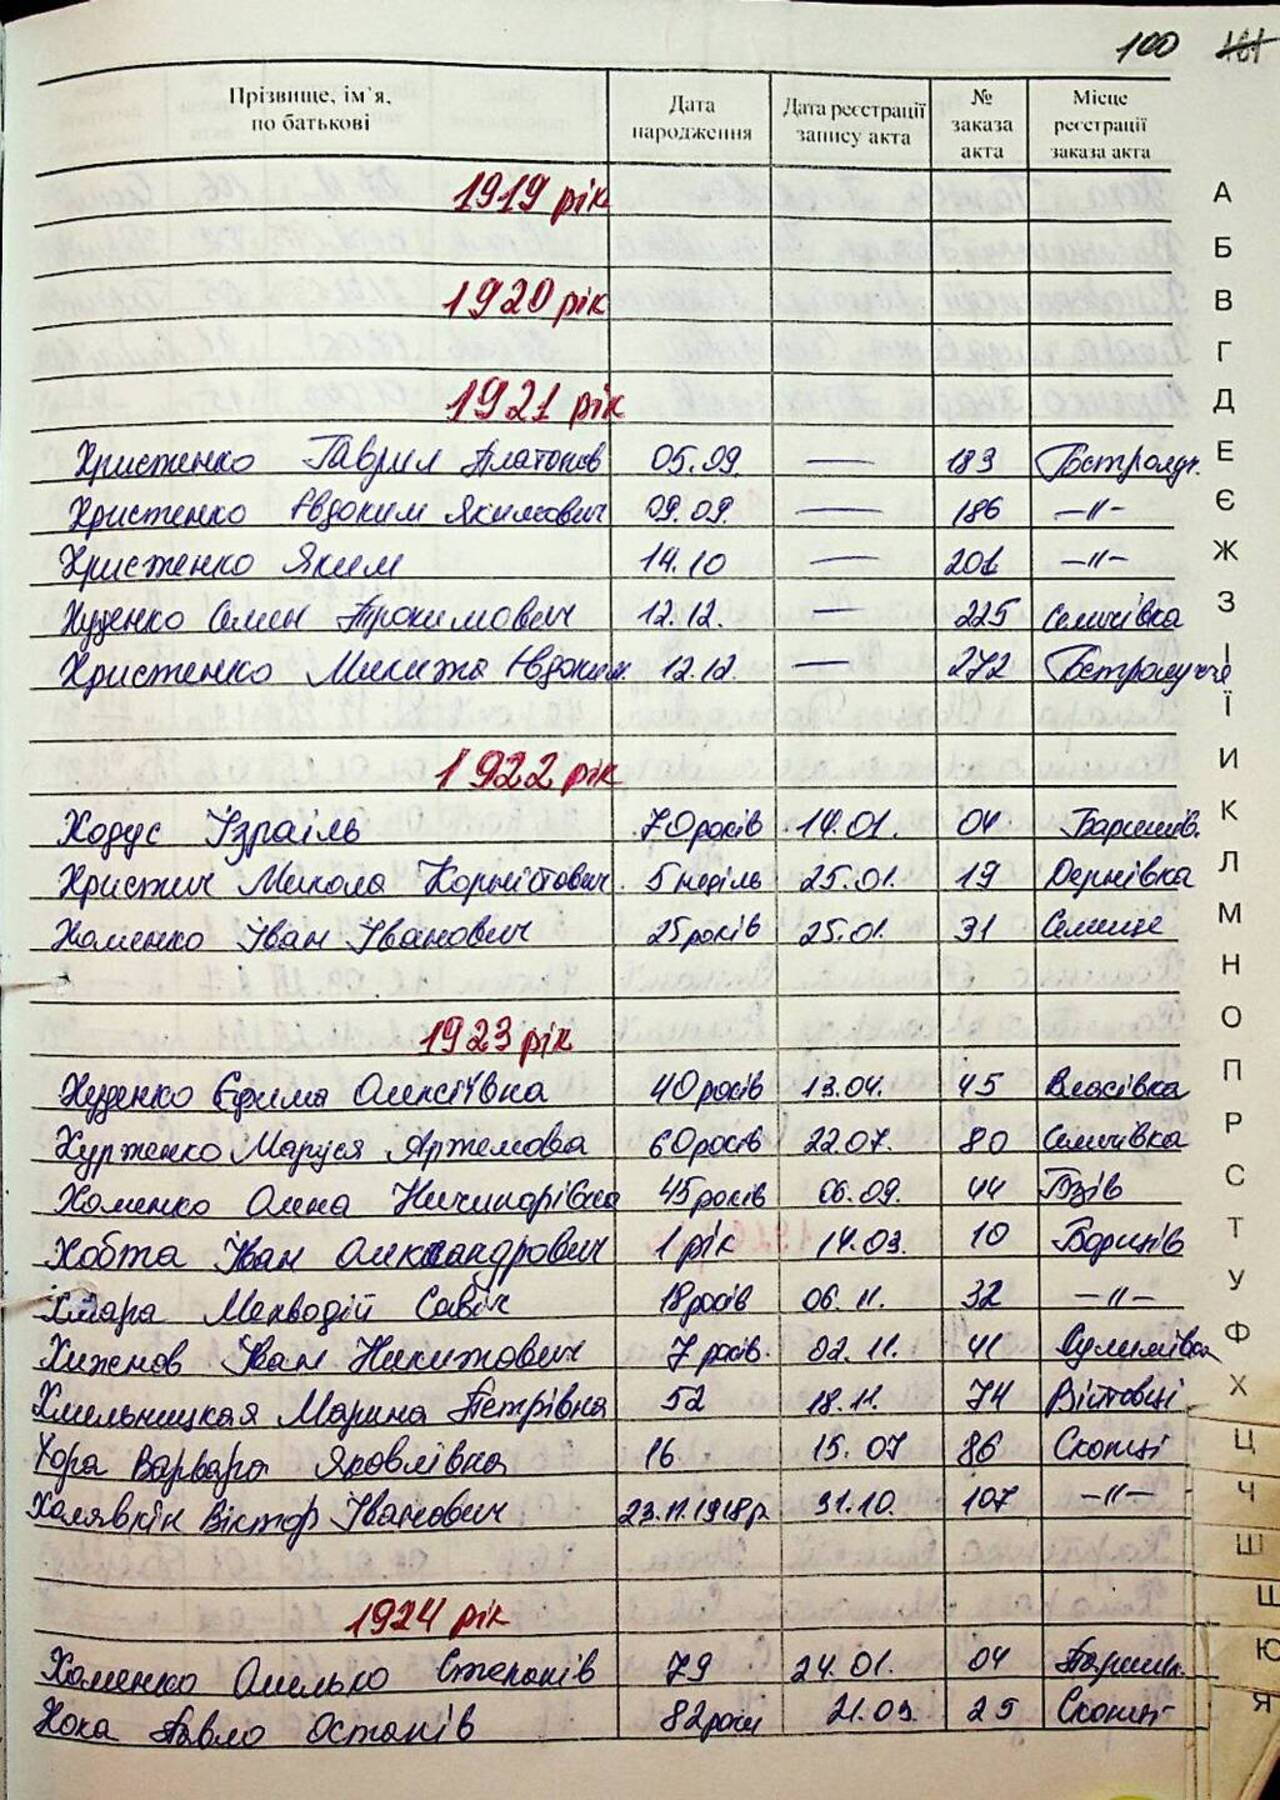 100 161
Прізвище, ім'я, по батькові Дата народження Дата реєстрації запису акта № заказа акта Місце реєстрації заказа акта
1919 рік
1920 рік
1921 рік
Христенко Гаврил Платонов 05.09. — 183
Христенко Євдоким Якимович 09.09. — 186 —//—
Христенко Яким 14.10 — 201 —//—
Худенко Семен Трохимович 12.12. — 225 Селичівка
Христенко Микита Євдоким. 12.12. — 272
1922 рік
Ходус Ізраіль 70 років 14.01. 04 Баришів.
Христич Микола Корнійович 5 неділь 25.01. 19 Дернівка
Хоменко Іван Іванович 25 років 25.01. 31 Селище
1923 рік
Худенко Єфима Олексіївна 40 років 13.04. 45 Власівка
Хурженко Маруся Артемовна 60 років 22.07. 80 Селичівка
Хоменко Олена Ничипорівна 45 років 06.09. 44
Хобта Іван Олександрович 1 рік 14.03. 10
Хмара Мехводій Савіч 18 років 06.11. 32 —//—
Хиженов Іван Никитович 7 років. 02.11. 41 Сулимівка
Хмельницкая Марина Петрівна 52 18.11. 74 Війтовці
Хора Варвара Яковлівна 16 15.07 86 Скопці
Холявкін Віктор Іванович 23.11.1918р. 31.10. 107 —//—
1924 рік
Хоменко Омелько Степанів 79 24.01. 04
Хока Павло Остапів 82 роки 21.03. 25 Скопці
А
Б
В
Г
Д
Е
Є
Ж
З
І
Ї
И
К
Л
М
Н
О
П
Р
С
Т
У
Ф
Х
Ц
Ч
Ш
Щ
Ю
Я